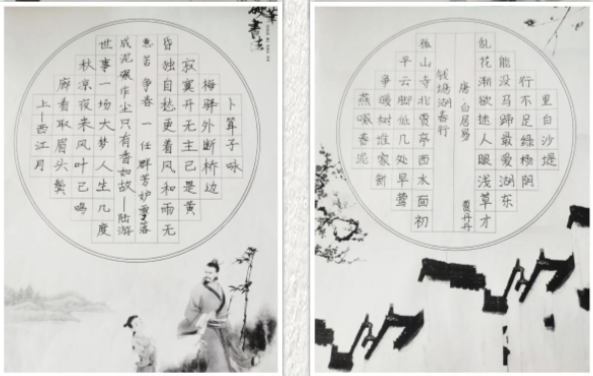 卜算子咏
梅驿外断桥边
寂寞开无主已是黄
昏独自愁更着风和雨无
意苦争春一任群芳妒零落
成泥碾作尘只有香如故——陆游
世事一场大梦人生几度
秋凉夜来风叶已鸣
廊看取眉头鬓
上——西江月
钱塘湖春行
唐 白居易
孤山寺北贾亭西水面初
平云脚低几处早莺
争暖树谁家新
燕啄春泥
乱花渐欲迷人眼浅草才
能没马蹄最爱湖东
行不足绿杨阴
里白沙堤